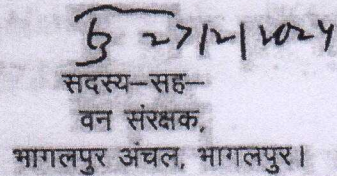 27/12/2024
सदस्य–सह–
वन संरक्षक,
भागलपुर अंचल, भागलपुर।